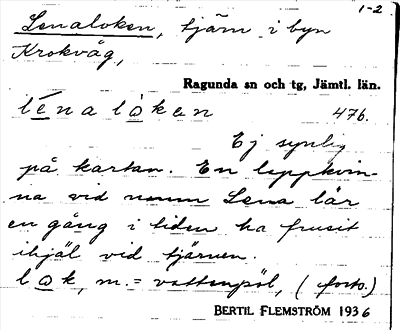 1-2
Lenaloken, tjärn i byn
Krokvåg,
Ragunda sn och tg, Jämtl. län.
lénalòken 476.
Ej synlig
på kartan. En lappkvin-
na vid namn Lena lär
en gång i tiden ha frusit
ihjäl vid tjärnen.
lok, m. = vattenpöl, (forts.)
BERTIL FLEMSTRÖM 1936